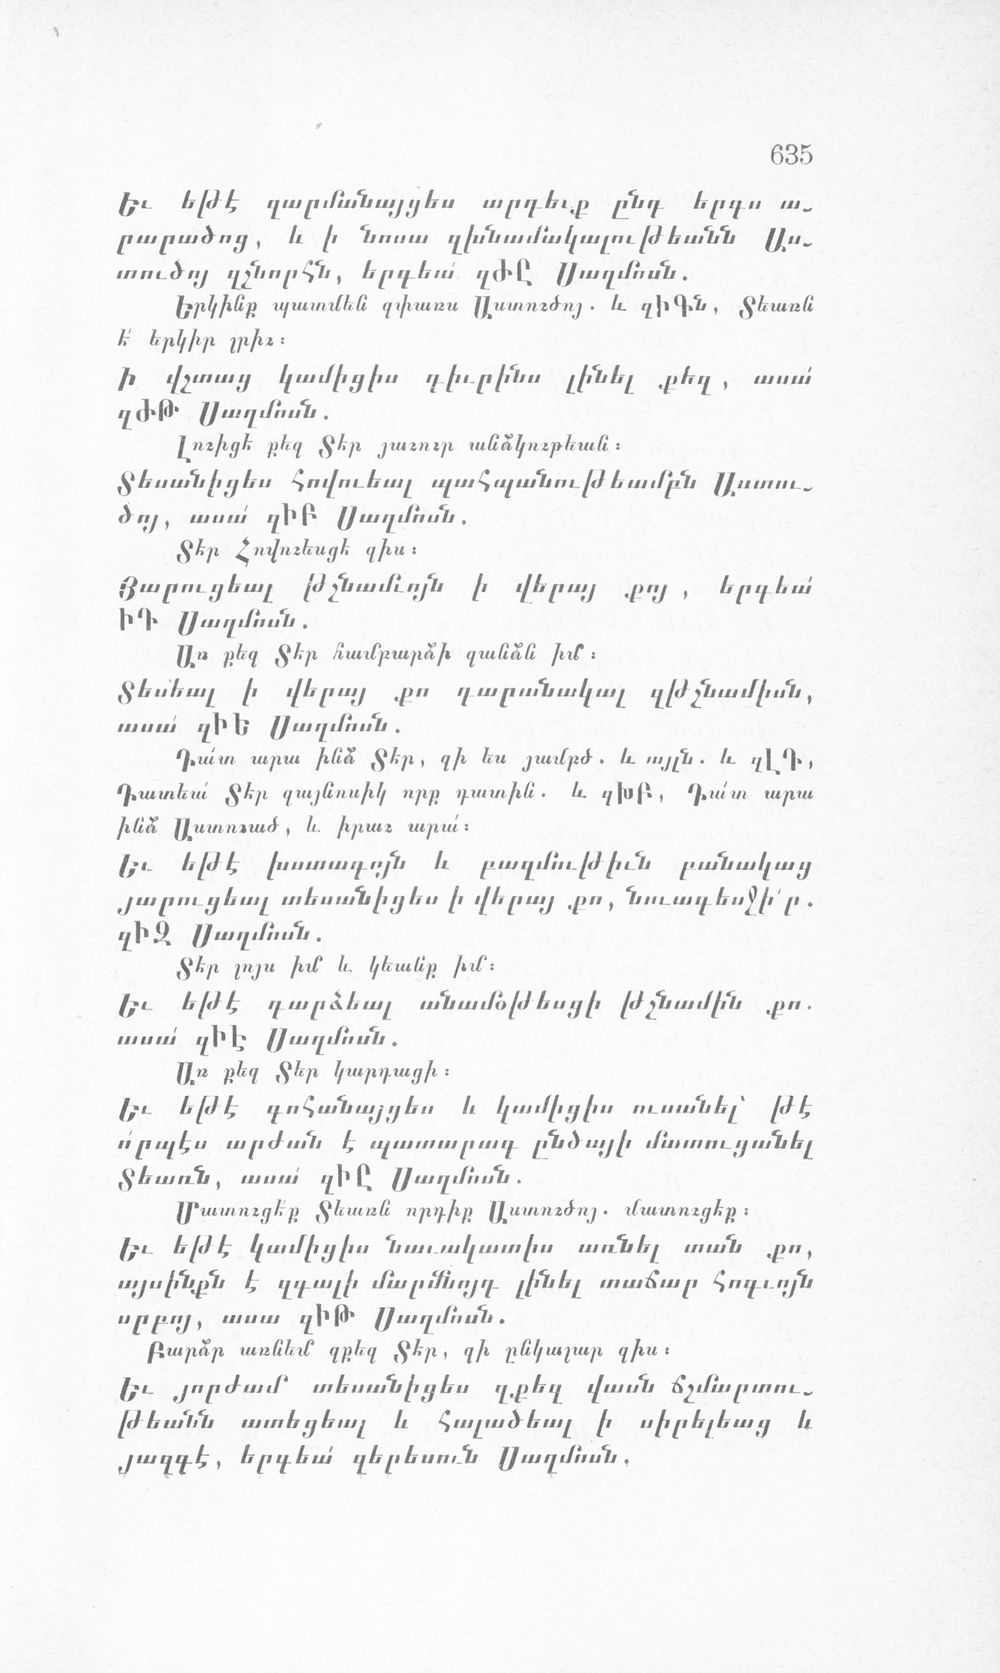 635
Եւ եթէ զարմանայցես արդեւք ընդ երգս ա-
րարածոց, և ի նոսա զխնամակալութեանն Աս-
տուծոյ զշնորհն, երգեա՛ զԺԸ Սաղմոսն.
Երկինք պատմեն զփառս Աստուծոյ. և զԻԳն, Տեառն
է՛ երկիր լրիւ։
Ի վշտաց կամիցիս դիւրինս լինել քեզ, ասա՛
զԺԹ Սաղմոսն.
Լուիցէ քեզ Տէր յաւուր անձկութեան։
Տեսանիցես հովուեալ պահպանութեամբն Աստու-
ծոյ, ասա՛ զԻԲ Սաղմոսն.
Տէր հովուեսցէ զիս։
Յարուցեալ թշնամւոյն ի վերայ քոյ, երգեա՛
ԻԴ Սաղմոսն.
Առ քեզ Տէր համբարձի զանձն իմ։
Տեսեալ ի վերայ քո դարանակալ զթշնամիսն,
ասա՛ զԻԵ Սաղմոսն.
Դա՛տ արա ինձ Տէր, զի ես յամբծ. և այլն. և զԼԴ,
Դատեա՛ Տէր զայնոսիկ որք դատին. և զԽԲ, Դա՛տ արա
ինձ Աստուած, և իրաւ արա՛։
Եւ եթէ խստագոյն և բազմութիւն բանակաց
յարուցեալ տեսանիցես ի վերայ քո, նուագեսջի՛ր.
զԻԶ Սաղմոսն.
Տէր լոյս իմ և կեանք իմ։
Եւ եթէ դարձեալ անամօթեսցի թշնամին քո.
ասա՛ զԻԷ Սաղմոսն.
Առ քեզ Տէր կարդացի։
Եւ եթէ գոհանայցես և կամիցիս ուսանել՝ թէ
ո՛րպէս արժան է պատարագ ընծայի մատուցանել
Տեառն, ասա՛ զԻԸ Սաղմոսն.
Մատուցէ՛ք Տեառն որդիք Աստուծոյ. մատուցէք։
Եւ եթէ կամիցիս նաւակատիս առնել տան քո,
այսինքն է զգալի մարմնոյդ լինել տաճար հոգւոյն
սրբոյ, ասա զԻԹ Սաղմոսն.
Բարձր առնեմ զքեզ Տէր, զի ընկալար զիս։
Եւ յորժամ տեսանիցես զքեզ վասն ճշմարտու-
թեանն ատեցեալ և հալածեալ ի սիրելեաց և
յազգէ, երգեա՛ զերեսուն Սաղմոսն.